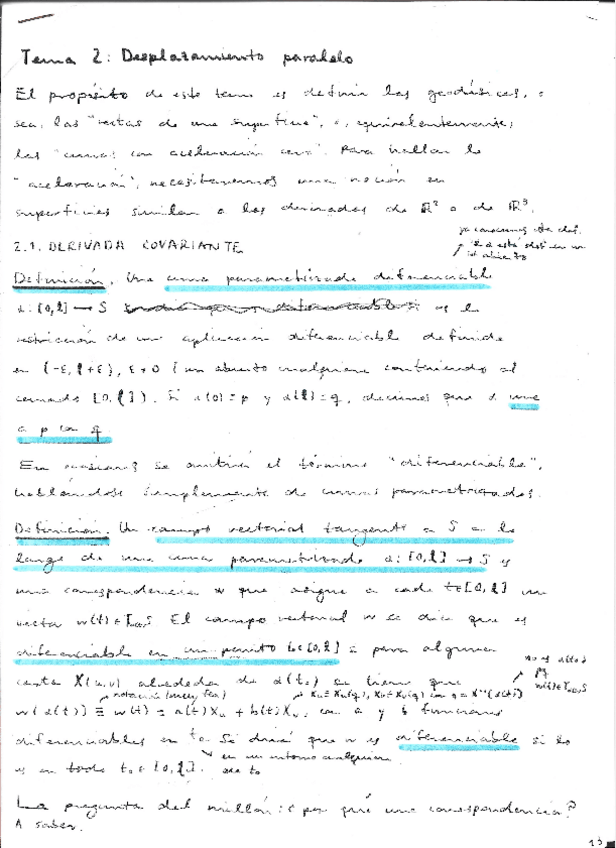 Tema 2: Desplazamiento paralelo
El propósito de este tema es definir las geodésicas, o
sea, las "rectas de una superficie", o, equivalentemente,
las "curvas con aceleración cero". Para hallar la
"aceleración", necesitaremos una noción en
superficies similar a las derivadas de ℝ² o de ℝ³.
ya conocemos esta def.
2.1. DERIVADA COVARIANTE
Definición. Una curva parametrizada diferenciable
α: [0,l] → S es la
restricción de una aplicación diferenciable definida
en (-ε, l+ε), ε>0 (un abierto cualquiera conteniendo al
cerrado [0,l]). Si α(0)=p y α(l)=q, decimos que α une
a p con q.
En ocasiones se omitirá el término "diferenciable",
hablándose simplemente de curvas parametrizadas.
Definición. Un campo vectorial tangente a S a lo
largo de una curva parametrizada α: [0,l] → S es
una correspondencia w que asigne a cada t∈[0,l] un
vector w(t)∈T S. El campo vectorial w se dice que es
diferenciable en un punto t₀∈[0,l] si para alguna
carta X(u,v) alrededor de α(t₀) se tiene que
w(α(t)) ≡ w(t) = a(t)Xu + b(t)Xv, con a y b funciones
diferenciables en t₀. Se dirá que w es diferenciable si lo
es en todo t₀∈[0,l].
en un entorno cualquiera
La pregunta del millón: ¿por qué una correspondencia?
A saber.